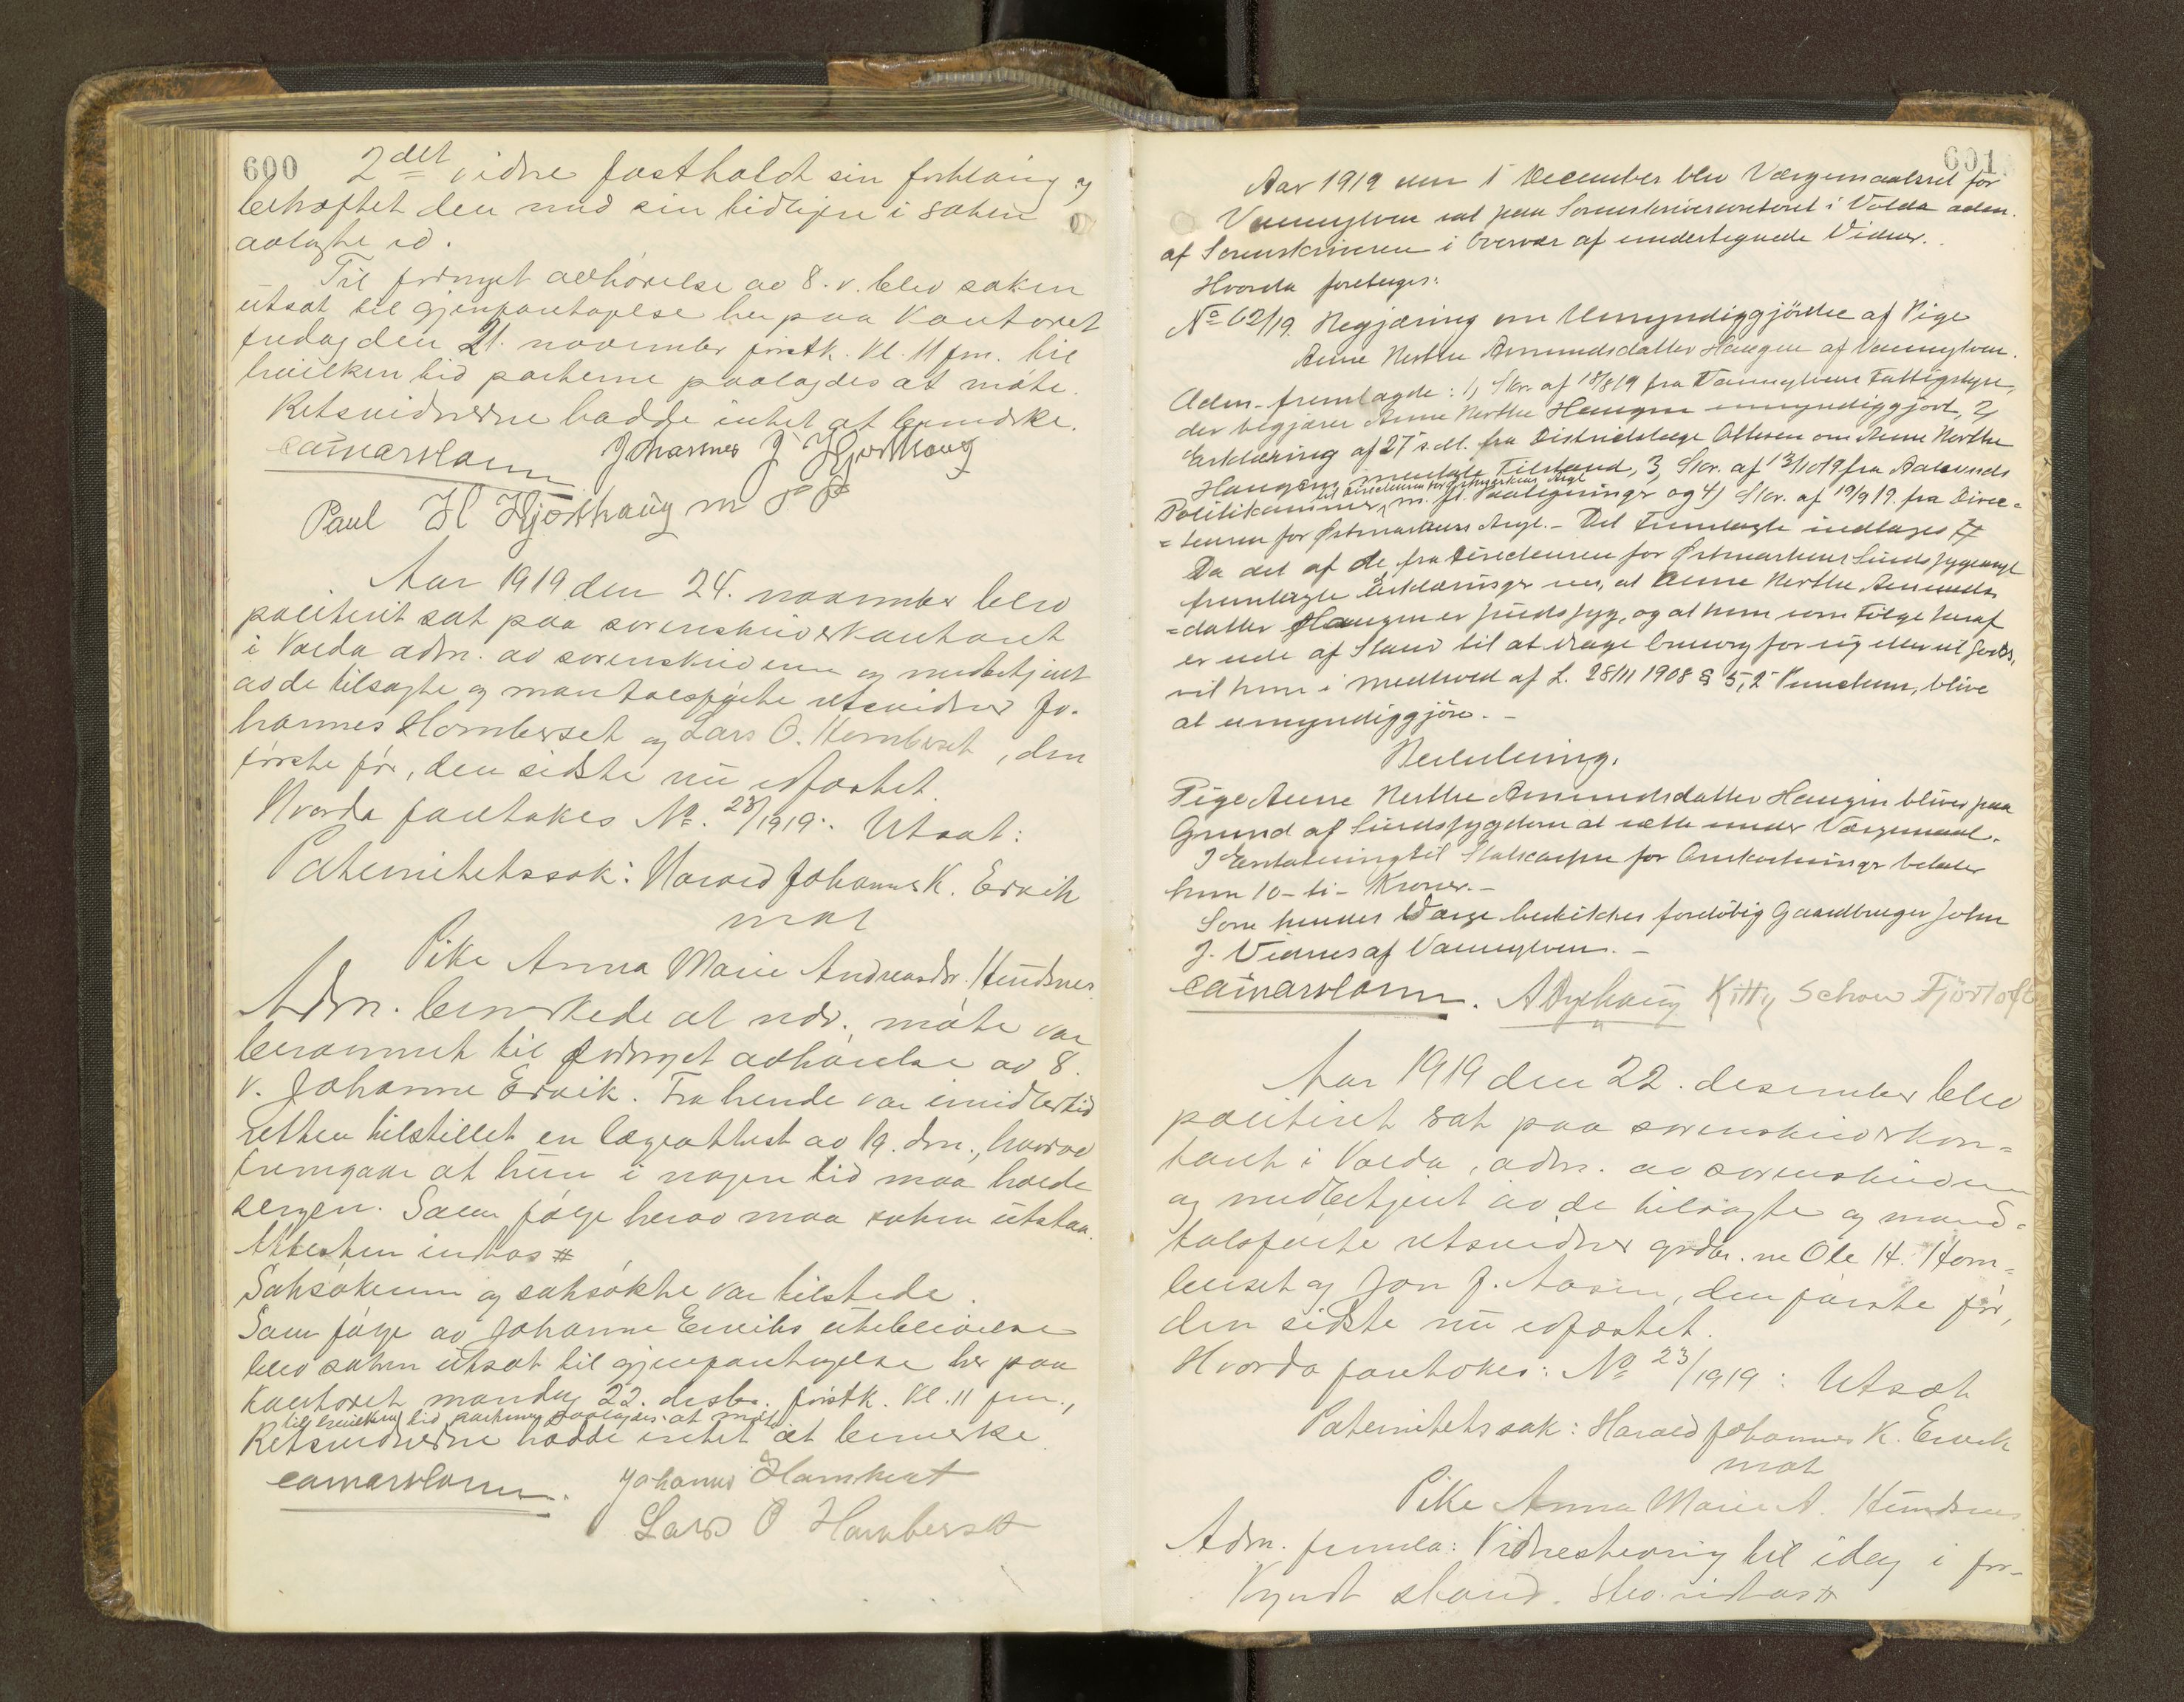 600
2det vidne fastholdt sin forklaring og
bekræftet den med sin tidligere i saken
avlagte ed.
Til fornyet avhørelse av 8. v. blev saken
utsat til gjenforetagelse her paa kontoret
fredag den 21. november førstk. kl. 11 fm. til
hvilken tid parterne paalagdes at møte.
Retsvidnerne hadde intet at bemerke.
Johannes J Hjorthaug
Paul H Hjorthaug m P P
Aar 1919 den 24. november blev
politiret sat paa sorenskriverkontoret
i Volda adm. av sorenskriveren og medbetjent
av de tilsagte og mantalsførte retsvidner Jo-
hannes Homberset og Lars O. Homberset, den
første før, den sidste nu edfæstet.
Hvorda foretokes No. 23/1919: Utsat:
Paternitetssak: Harald Johannes K. Ervik
mot
Pike Anna Marie Andreasdr. Hundsnes
Adm. bemerkede at ndv. møte var
berammet til fornyet avhørelse av 8.
v. Johanne Ervik. Fra hende var imidlertid
retten tilstillet en lægeattest av 19. dm., hvorav
fremgaar at hun i nogen tid maa holde
sengen. Som følge herav maa saken utstaa.
Attesten indtas #
Saksøkeren og saksøkte var tilstede.
Som følge av Johanne Erviks uteblivelse
blev saken utsat til gjenforetagelse her paa
kontoret mandag 22. desbr. førstk. kl. 11 fm.,
til hvilken tid parterne paalagdes at møte
Retsvidnerne hadde intet at bemerke.
Johannes Homberset
Lars O. Homberset
601
Aar 1919 den 1 December blev Værgemaalsret for
Vannylven sat paa Sorenskriverkontoret i Volda adm.
af Sorenskriveren i Overvær af undertegnede Vidner.
Hvorda foretages:
No 62/19. Begjæring om Umyndiggjörelse af Pige
Anne Berthe Amundsdatter Haugen af Vannylven.
Adm. fremlagde: 1, Skr. af 18/8 19 fra Vannylvens Fattigstyre,
der begjærer Anne Berthe Haugen umyndiggjort, 2,
Erklæring af 27 s. M. fra Distriktslæge Ottesen om Anne Berthe
Haugens mentale Tilstand, 3, Skr. af 13/10 19 fra Aalesunds
til Direktøren for Østmarkens Asyl
Politikammer m. fl. Paategninger og 4) Skr. af 19/9 19. fra Direc-
=teuren for Østmarkens Asyl. - Det Fremlagte indtages #
Da det af de fra Directeuren for Østmarkens Sindssygeasyl
fremlagte Erklæringer sees, at Anne Berthe Amunds-
=datter Haugen er sindssyg, og at hun som Følge heraf
er ude af Stand til at drage Omsorg for sig eller sit Gods,
vil hun i Medhold af L. 28/11 1908 § 5, 2 Punctum, blive
at umyndiggjöre. -
Beslutning.
Pige Anne Berthe Amundsdatter Haugen bliver paa
Grund af Sindssygdom at sætte under Værgemaal.
I Erstatning til Statskassen for Omkostninger betaler
hun 10 - ti - Kroner. -
Som hendes Værge beskikkes foreløbig Gaardbruger John
J. Vidnes af Vannylven. -
Kitty Schow Fjörtoft
Aar 1919 den 22. desember blev
politiret sat paa sorenskriverkon=
toret i Volda, adm. av sorenskriveren
og medbetjent av de tilsagte og mand=
talsførte retsvidner grdbr. ne Ole H. Hom=
berset og Jon J. Aasen, den første før,
den sidste nu edfæstet.
Hvorda foretokes: No 23/1919: Utsat
Paternitetssak: Harald Johannes K. Ervik
mot
Pike Anna Marie A. Hundsnes
Adm. fremla: Vidnestevning til idag i for-
kyndt stand. Stev. indtas #